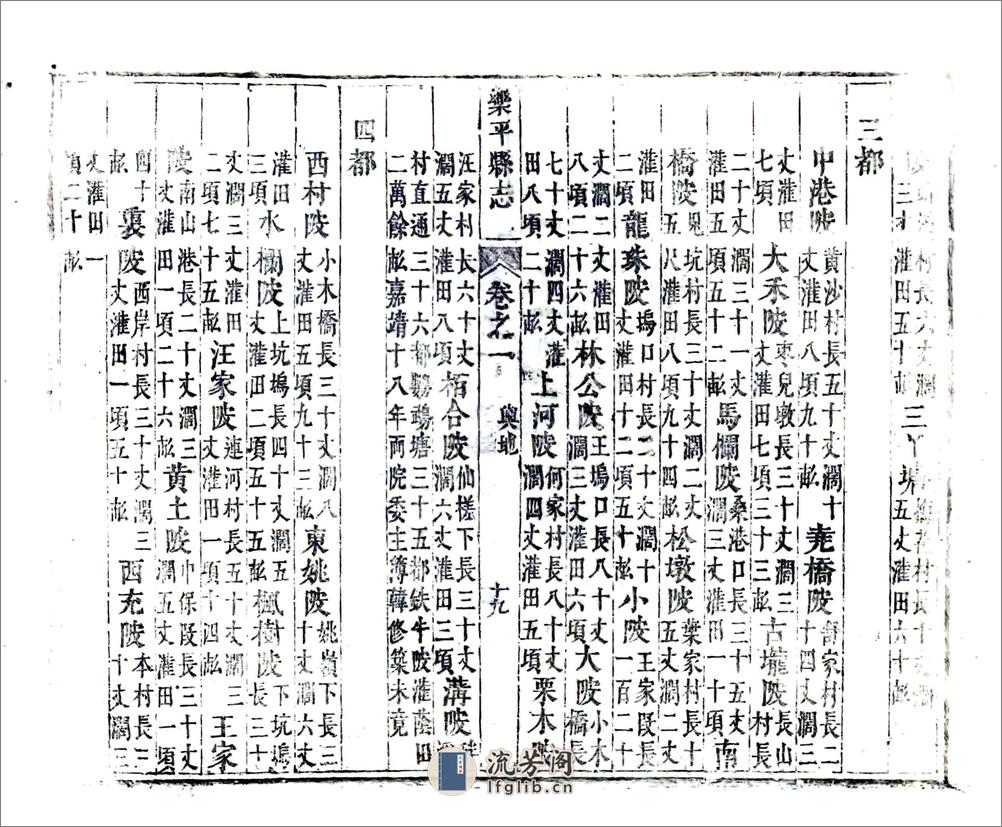 村長六丈濶三丈灌田五十畝三丫塘村長十丈濶五丈灌田六十畝
三都
中港陂黄沙村長五十丈濶十丈灌田八頃九十畝堯橋陂舒家村長二十四丈濶三
丈灌田七頃大禾陂棗兒墩長三十丈濶三丈灌田七頃三十三畝古壠陂長山村長
二十丈濶三十一丈灌田五頃五十二畝馬欄陂桑港口長三十五丈濶三丈灌田一十頃南
橋陂鬼坑村長三十丈濶二丈五尺灌田八頃九十四畝松墩陂葉家村長十五丈濶二丈
灌田二頃龍珠陂塢口村長二十丈濶十丈灌田十二頃五十畝小陂王家段長一百二十
丈濶二丈灌田八頃二十六畝林公陂王塢口長八十丈濶三丈灌田六頃大陂小木橋長
七十丈濶四丈灌田八頃二十畝上河陂何家村長七十丈濶四丈灌田五頃栗木陂
樂平縣志 卷之一 輿地 十九
汪家村長六十丈濶五丈灌田八頃栢合陂仙槎下長三十丈濶六丈灌田三頃溝陂
村直通三十六都鸂鶒塘三十五都鉄牛陂灌蔭田二萬餘畝嘉靖十八年兩院委主簿韓修築未竟
四都
西村陂小木橋長三十丈濶八丈灌田五頃九十三畝東姚陂姚嶺下長三十丈濶六丈
灌田三頃水欄陂上坑塢長四十丈濶五丈灌田二頃五十五畝楓樹陂下坑塢長三十
丈濶三丈灌田二頃七十五畝汪家陂連河村長五十丈濶三丈灌田一頃十四畝王家
陂南山港長二十丈濶三丈灌田一頃二十六畝黄土陂巾保段長三十丈濶五丈灌田一頃
四十畝裏陂西岸村長三十丈濶三丈灌田一頃五十畝西充陂本村長三十丈濶三
丈灌田一頃二十畝
流芳阁
lfglib.cn